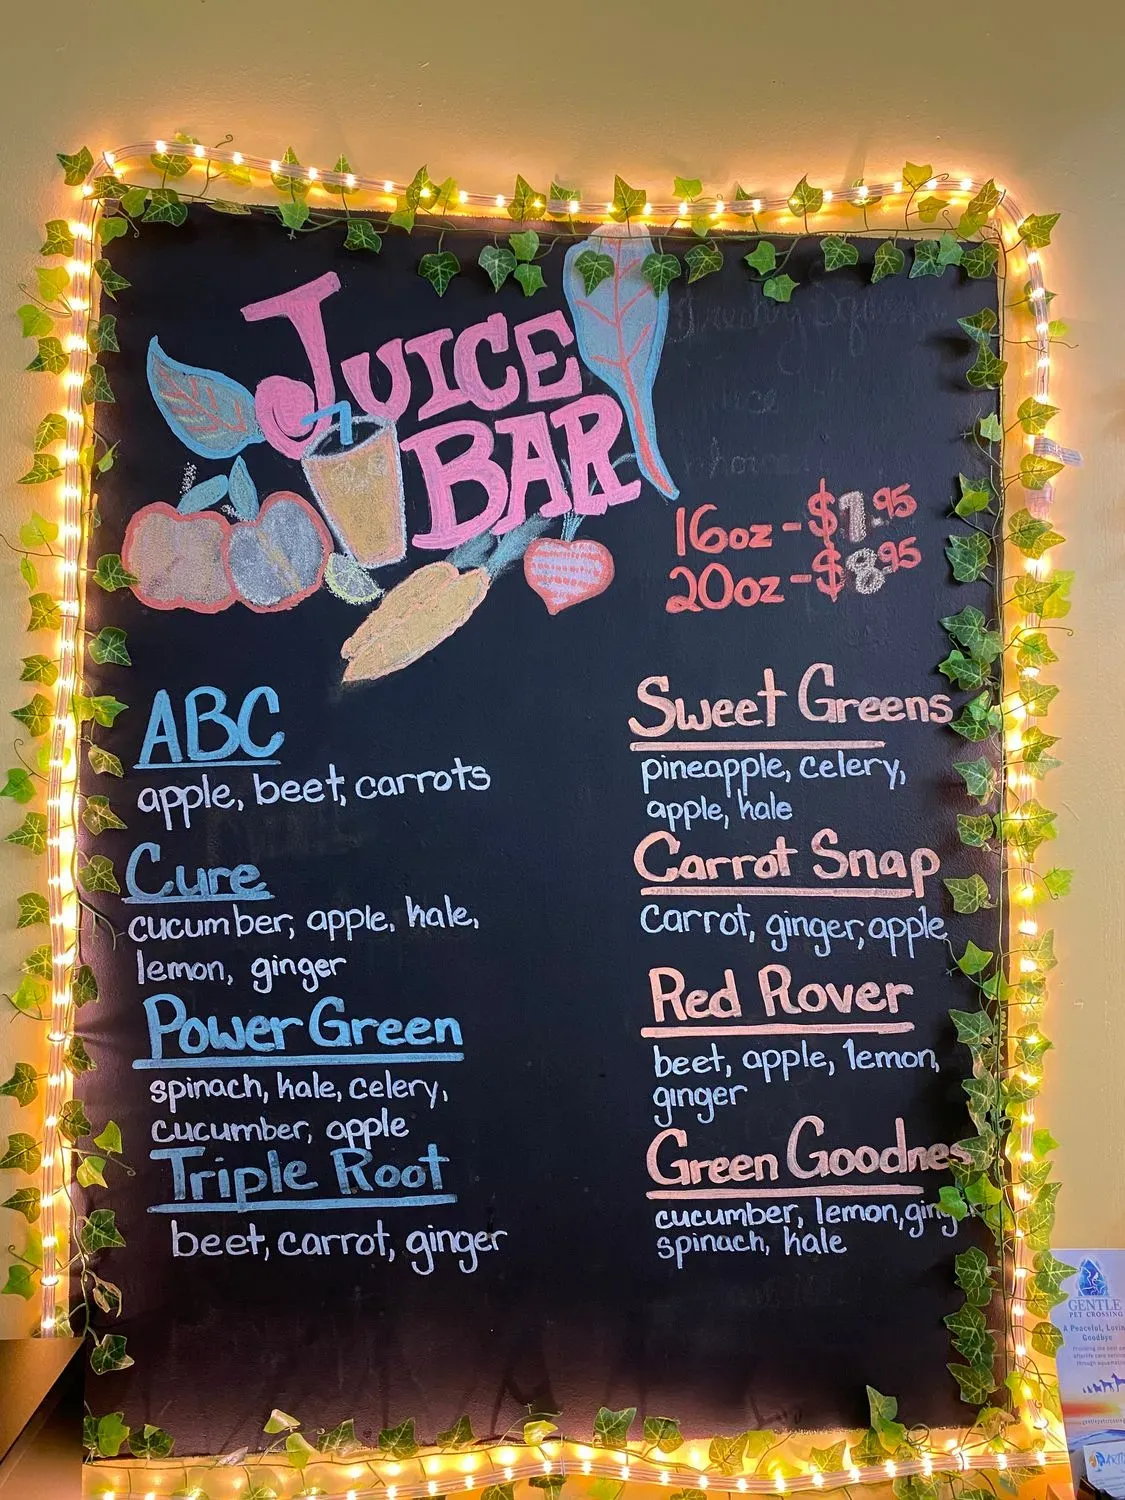 JUICE
BAR
16oz - $7.95
20oz - $8.95
ABC
apple, beet, carrots
Cure
cucumber, apple, kale,
lemon, ginger
Power Green
spinach, kale, celery,
cucumber, apple
Triple Root
beet, carrot, ginger
Sweet Greens
pineapple, celery,
apple, kale
Carrot Snap
carrot, ginger, apple
Red Rover
beet, apple, lemon,
ginger
Green Goodnes
cucumber, lemon, ginger
spinach, kale
GENTLE
PET CROSSING
A Peaceful, Lovin
Goodbye